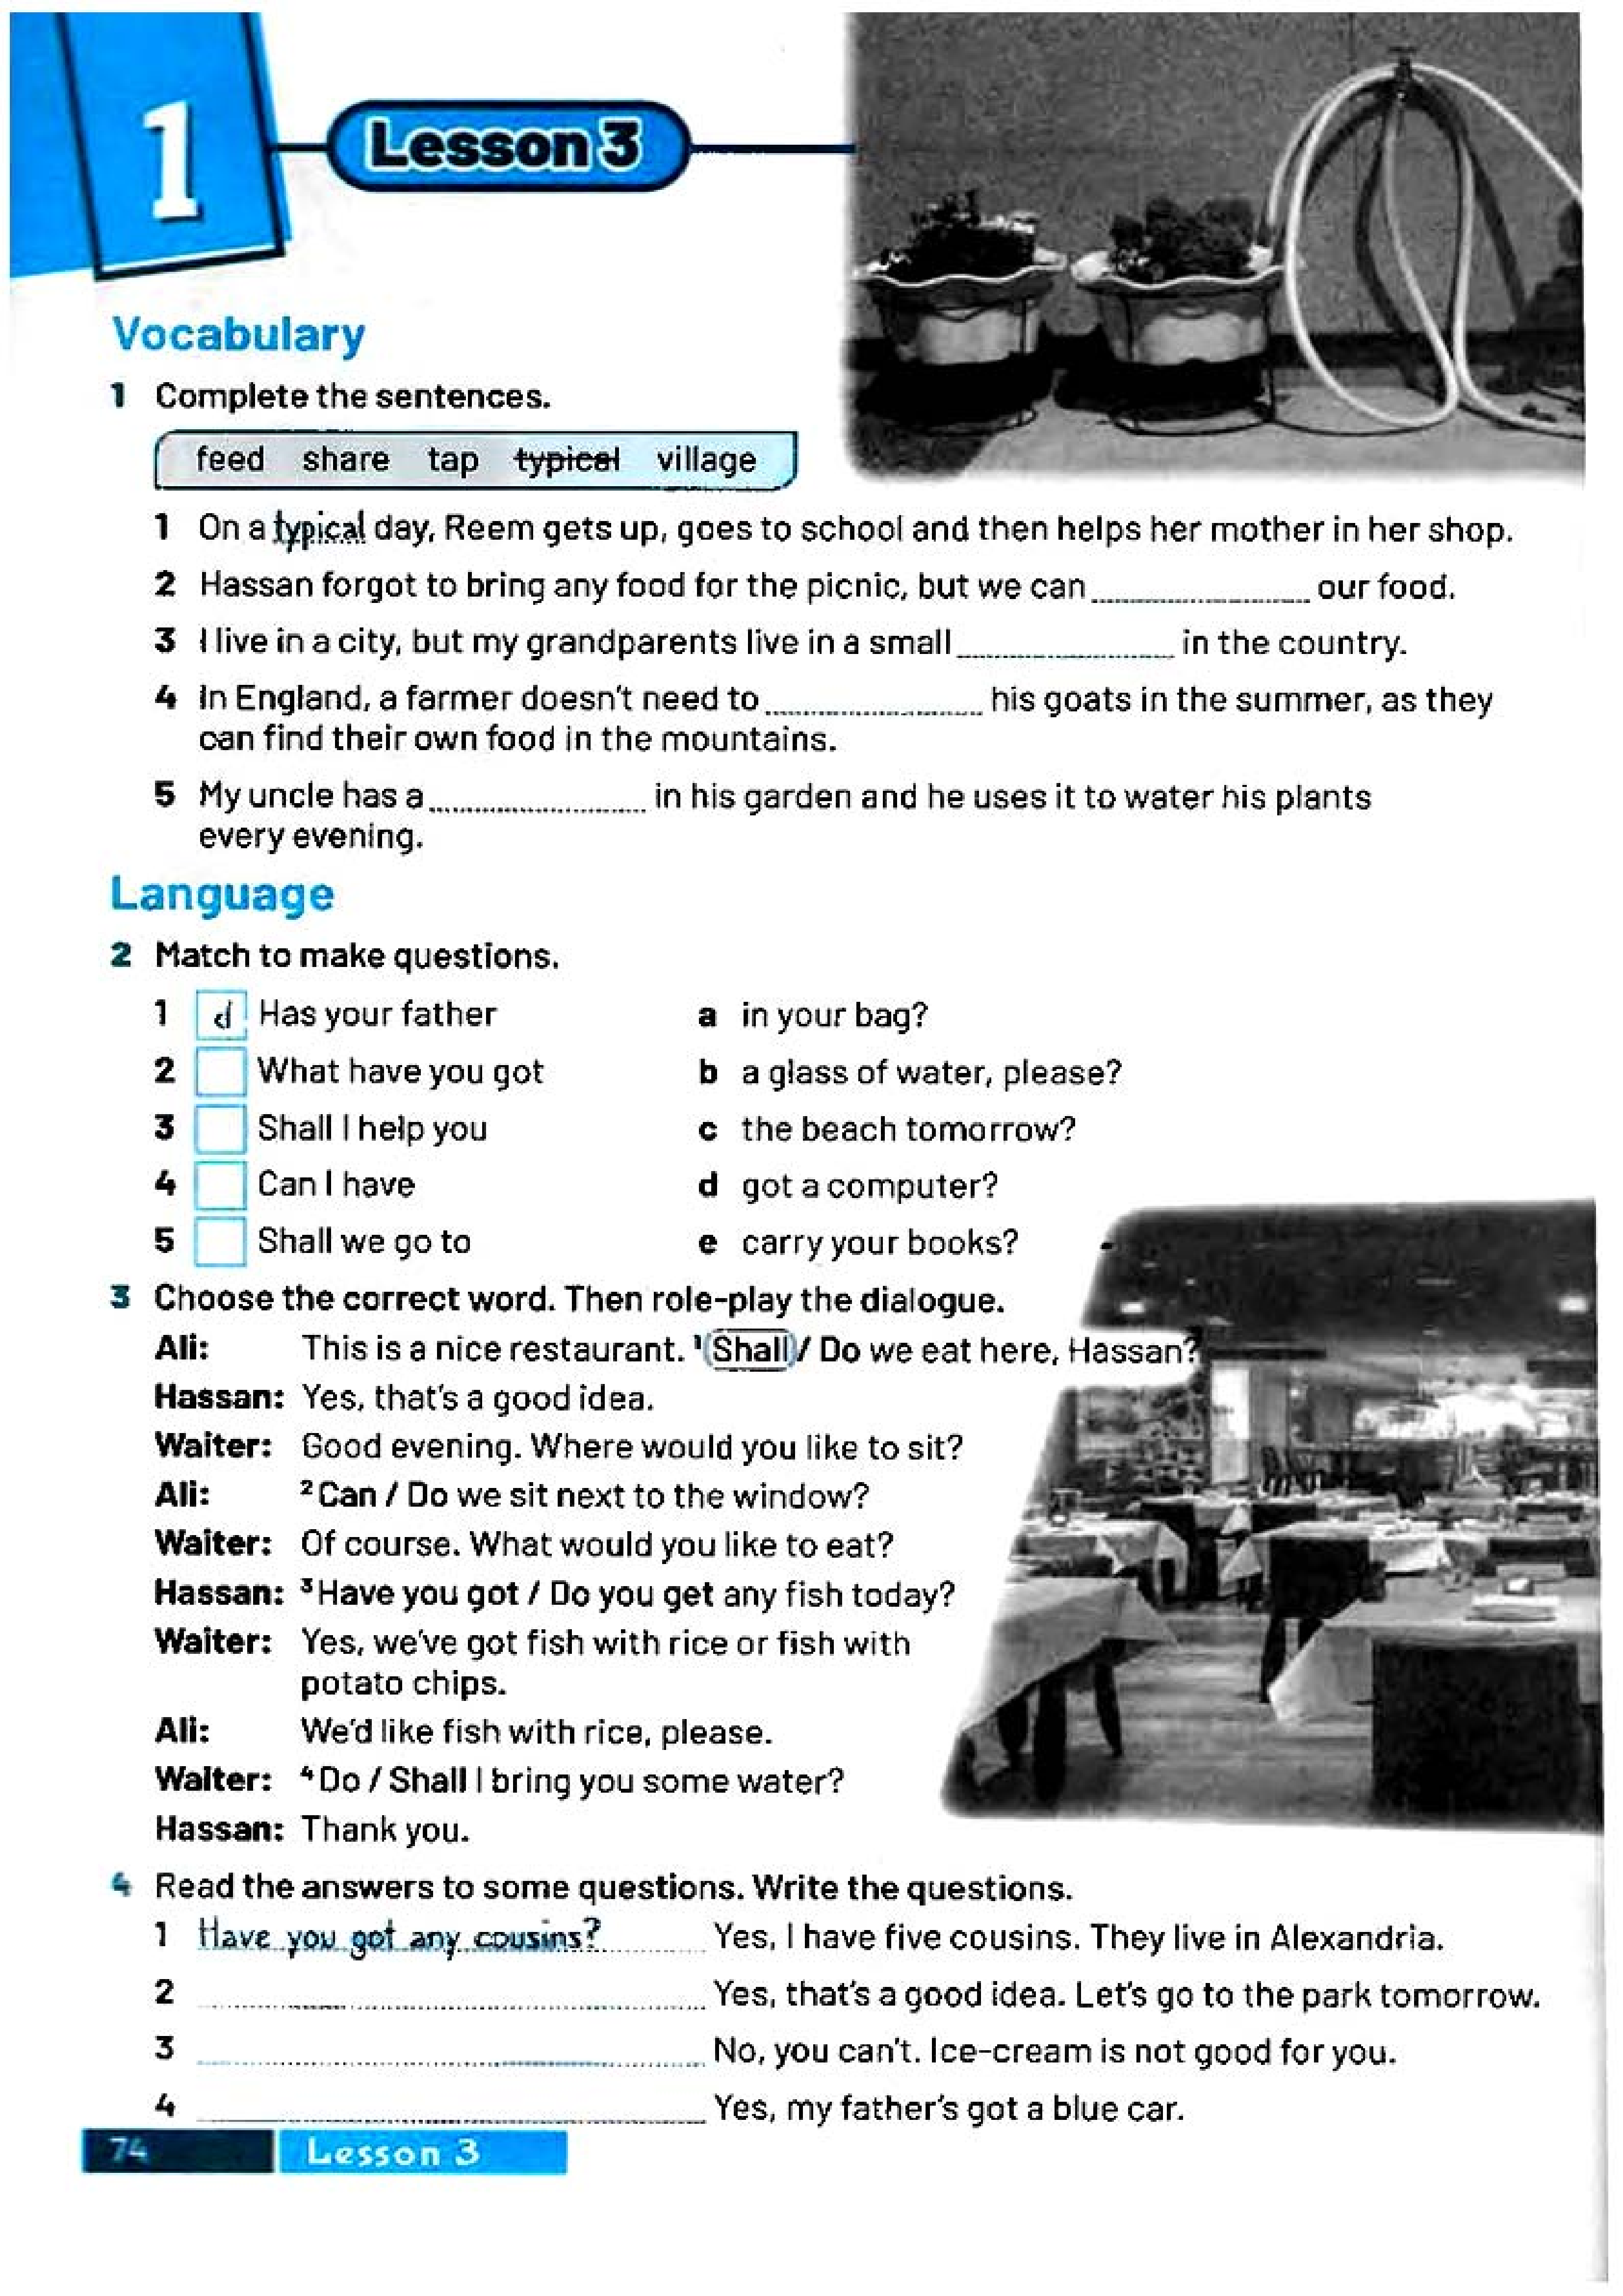 1
Lesson 3
Vocabulary
1 Complete the sentences.
feed share tap typical village
1 On a typical day, Reem gets up, goes to school and then helps her mother in her shop.
2 Hassan forgot to bring any food for the picnic, but we can .................... our food.
3 I live in a city, but my grandparents live in a small .................... in the country.
4 In England, a farmer doesn't need to .................... his goats in the summer, as they
can find their own food in the mountains.
5 My uncle has a .................... in his garden and he uses it to water his plants
every evening.
Language
2 Match to make questions.
1 d Has your father a in your bag?
2 What have you got b a glass of water, please?
3 Shall I help you c the beach tomorrow?
4 Can I have d got a computer?
5 Shall we go to e carry your books?
3 Choose the correct word. Then role-play the dialogue.
Ali: This is a nice restaurant. 1 Shall / Do we eat here, Hassan?
Hassan: Yes, that's a good idea.
Waiter: Good evening. Where would you like to sit?
Ali: 2 Can / Do we sit next to the window?
Waiter: Of course. What would you like to eat?
Hassan: 3 Have you got / Do you get any fish today?
Waiter: Yes, we've got fish with rice or fish with
potato chips.
Ali: We'd like fish with rice, please.
Waiter: 4 Do / Shall I bring you some water?
Hassan: Thank you.
4 Read the answers to some questions. Write the questions.
1 Have you got any cousins? .......... Yes, I have five cousins. They live in Alexandria.
2 .................... Yes, that's a good idea. Let's go to the park tomorrow.
3 .................... No, you can't. Ice-cream is not good for you.
4 .................... Yes, my father's got a blue car.
74 Lesson 3